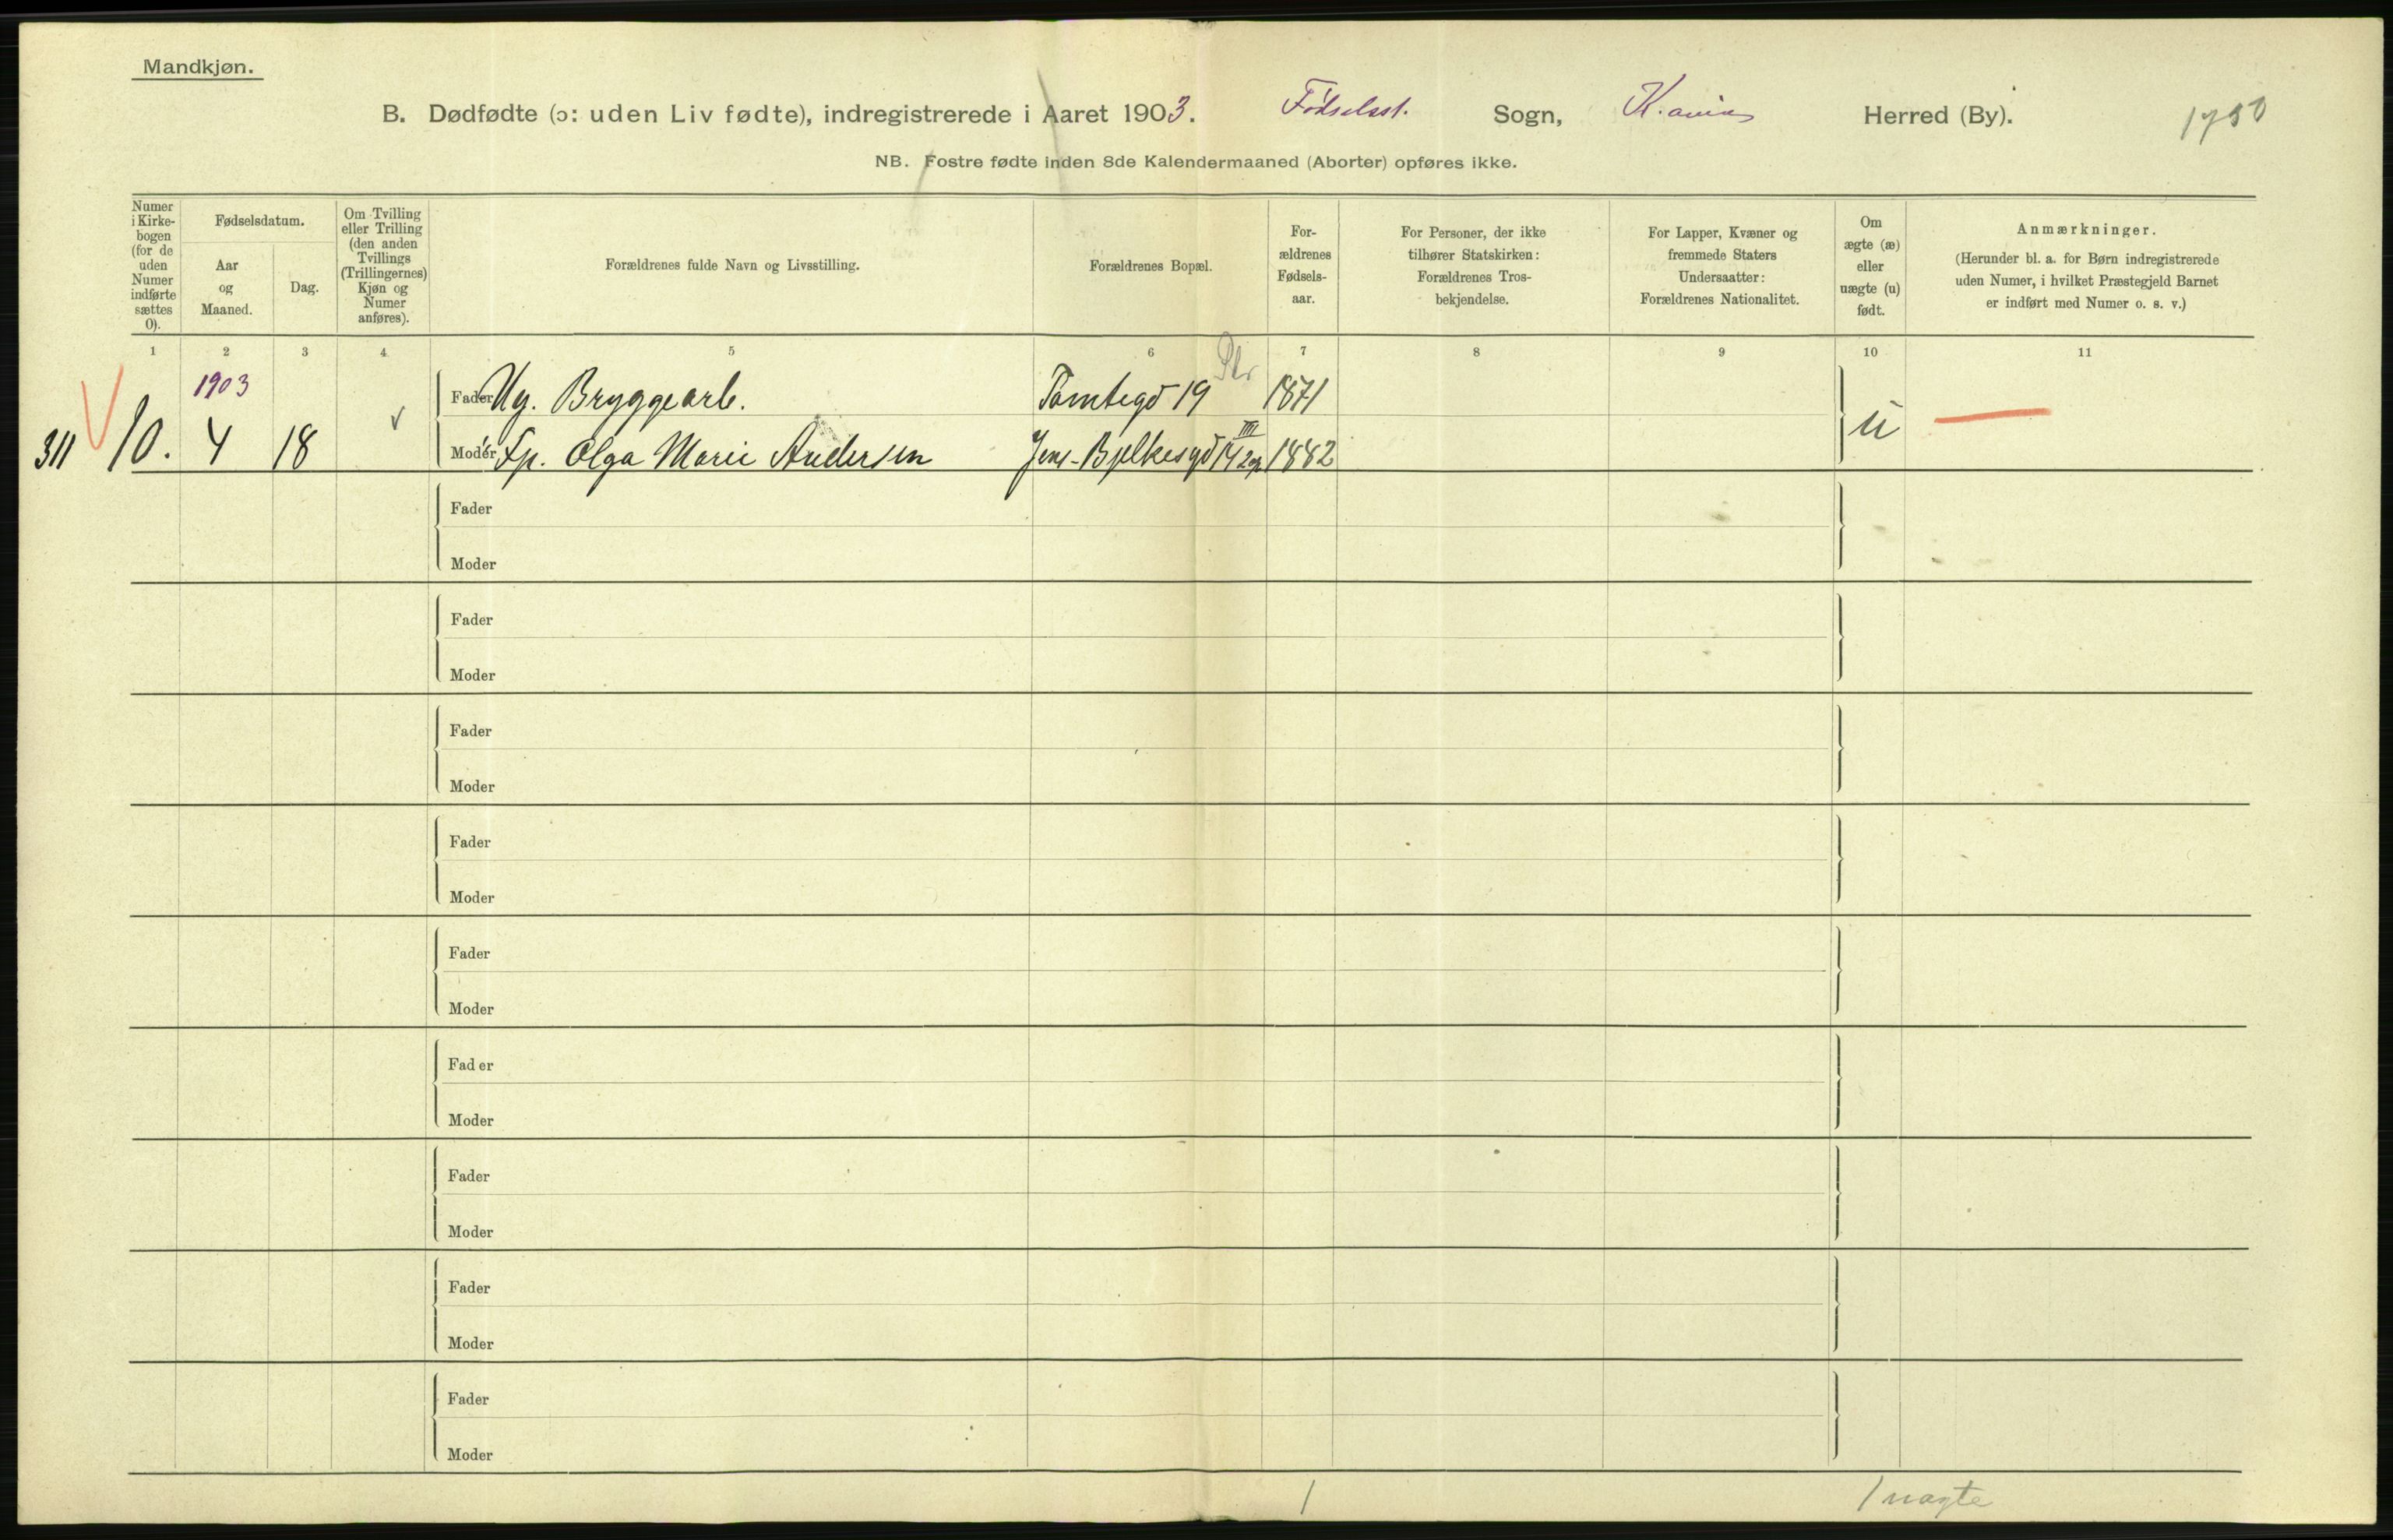 Mandkjøn.
B. Dødfødte (ɔ: uden Liv fødte), indregistrerede i Aaret 1903. Fødselsst. Sogn, K.ania Herred (By). 1750
NB. Fostre fødte inden 8de Kalendermaaned (Aborter) opføres ikke.
Numer
i Kirke-
bogen
(for de
uden
Numer
indførte
sættes
0).
Fødselsdatum.
Aar
og
Maaned.
Dag.
Om Tvilling
eller Trilling
(den anden
Tvillings
(Trillingernes)
Kjøn og
Numer
anføres).
Forældrenes fulde Navn og Livsstilling.
Forældrenes Bopæl.
For-
ældrenes
Fødsels-
aar.
For Personer, der ikke
tilhører Statskirken:
Forældrenes Tros-
bekjendelse.
For Lapper, Kvæner og
fremmede Staters
Undersaatter:
Forældrenes Nationalitet.
Om
ægte (æ)
eller
uægte (u)
født.
Anmærkninger.
(Herunder bl. a. for Børn indregistrerede
uden Numer, i hvilket Præstegjeld Barnet
er indført med Numer o. s. v.)
1 2 3 4 5 6 7 8 9 10 11
1903
Fader Ug. Bryggearb. Tomtegd 19 1871
311 10. 4 18 Moder Fp. Olga Marie Andersen Jens-Bjelkesgd III 1882 u
Fader
Moder
Fader
Moder
Fader
Moder
Fader
Moder
Fader
Moder
Fader
Moder
Fader
Moder
Fader
Moder
Fader
Moder
1 1 uægte